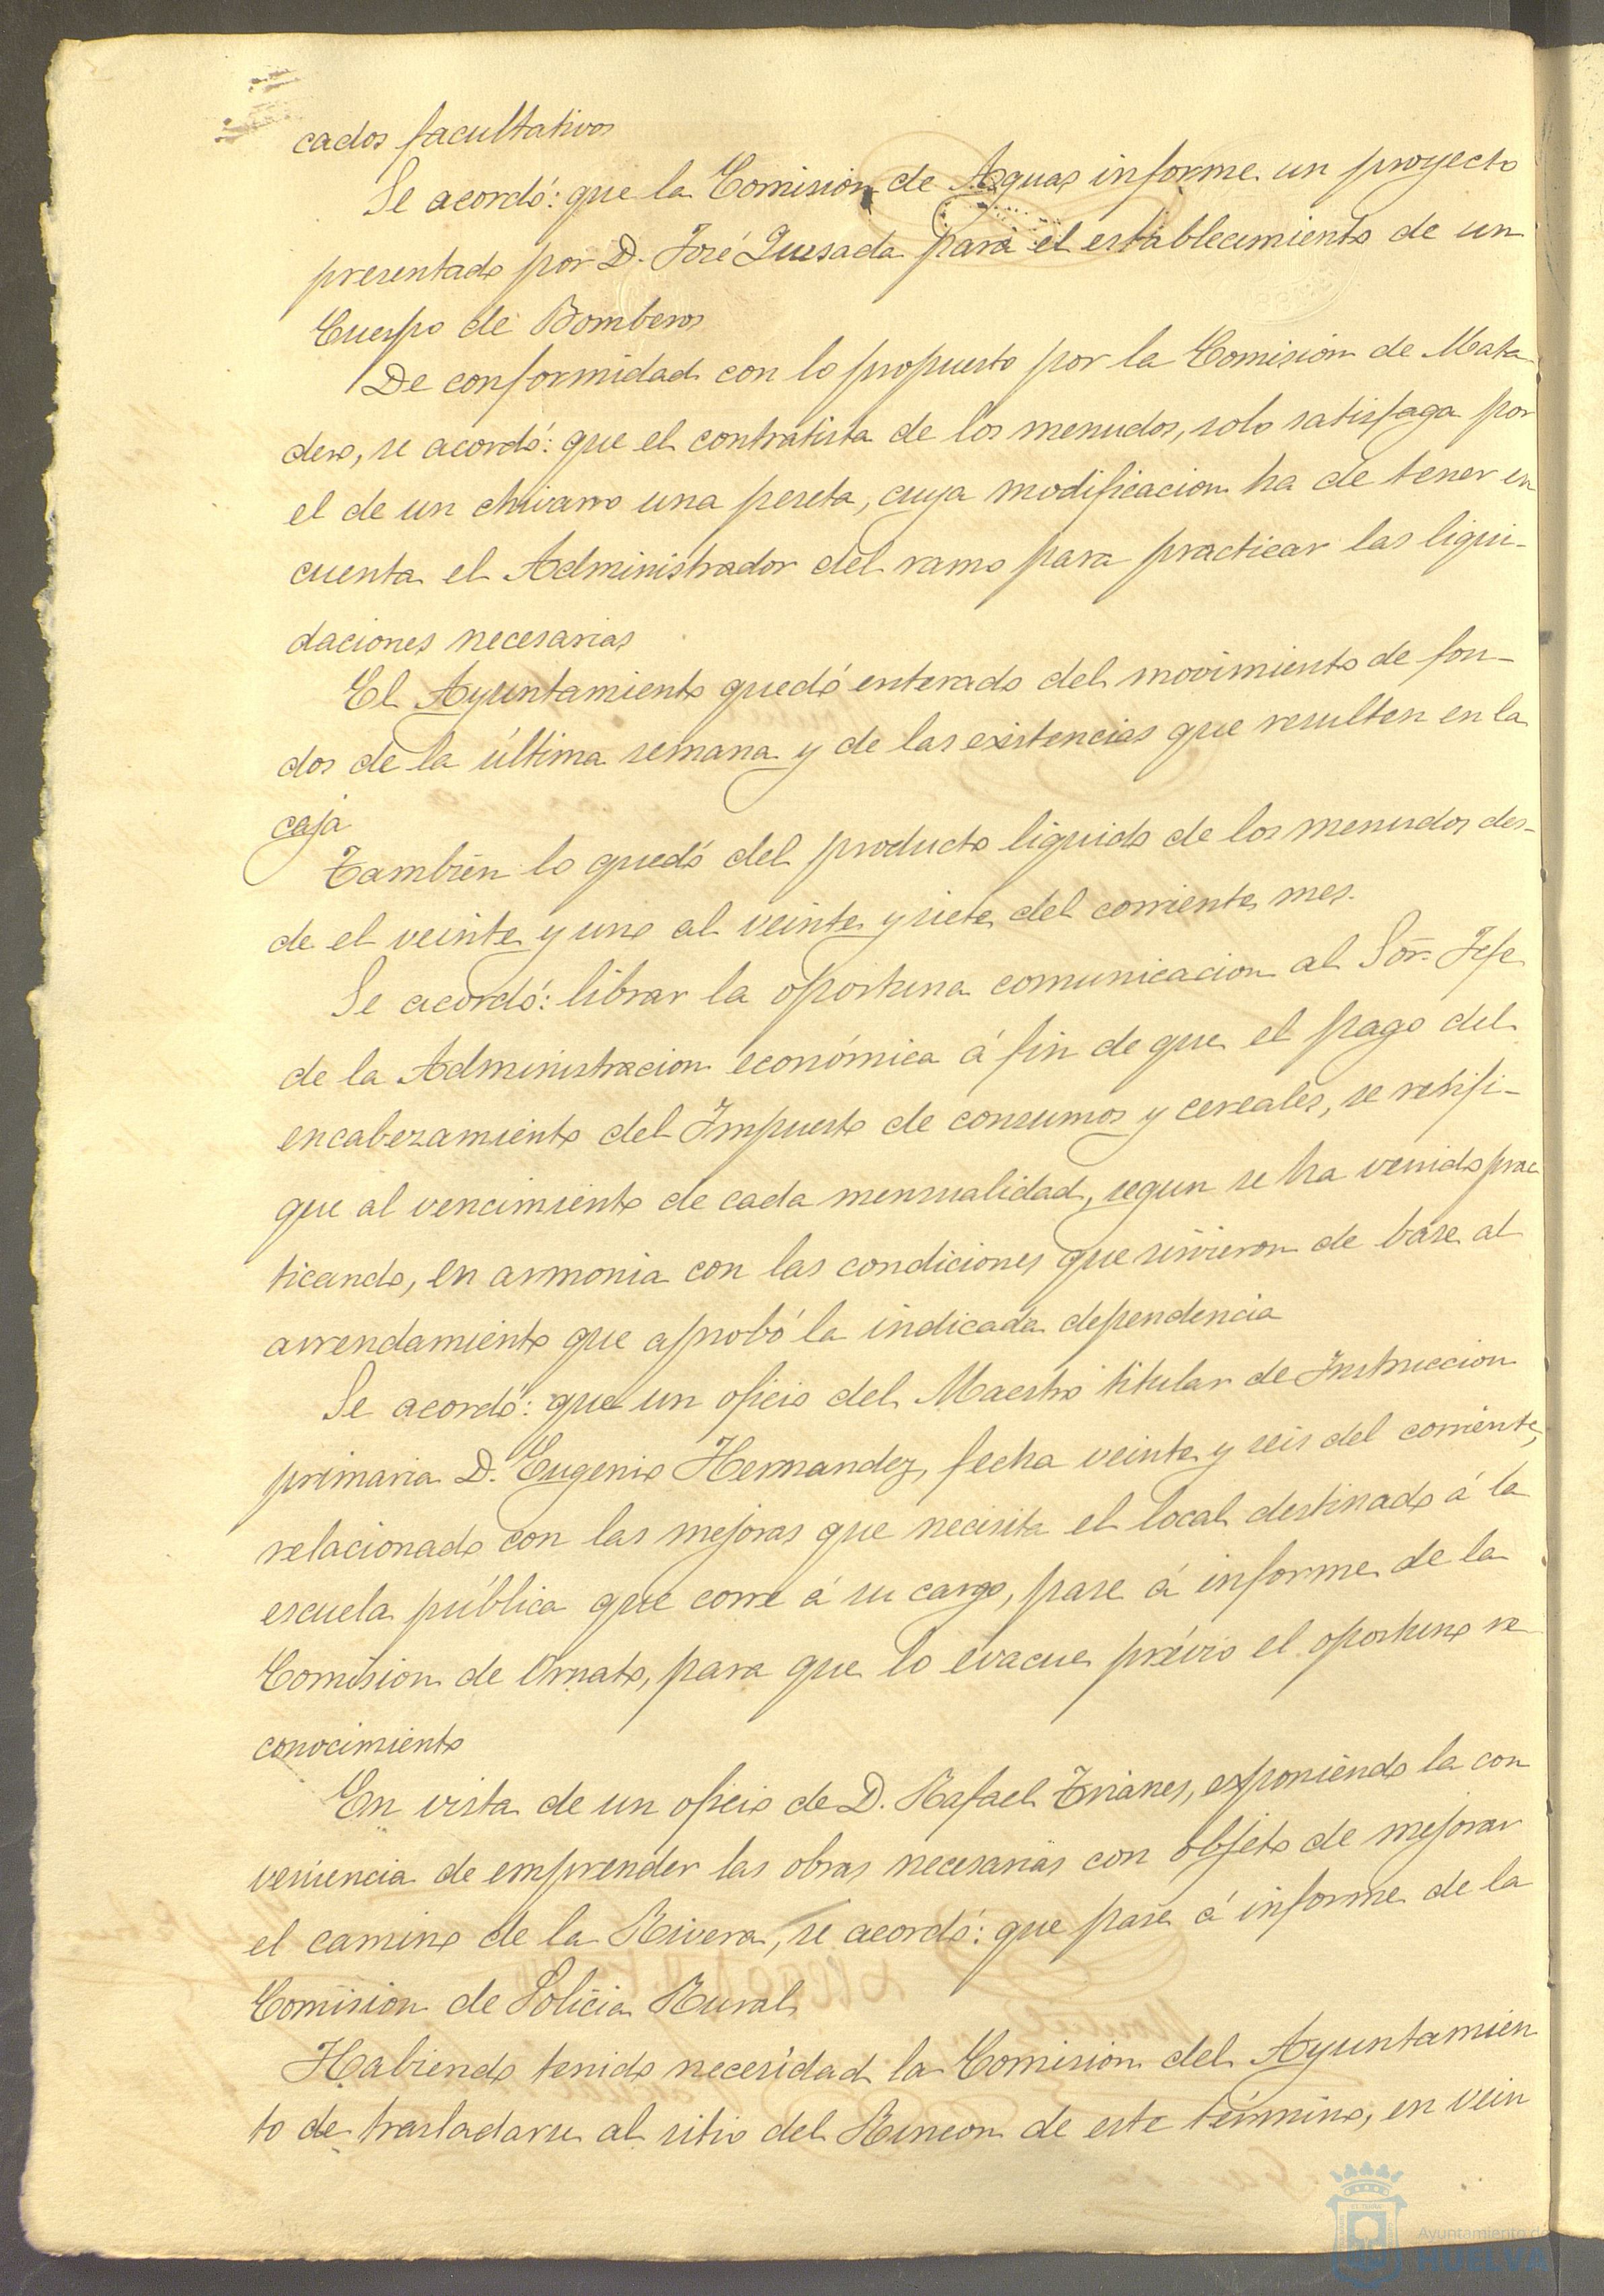 cados facultativos
Se acordó: que la Comision de Aguas informe un proyecto
presentado por D. José Quesada para el establecimiento de un
Cuerpo de Bomberos
De conformidad con lo propuesto por la Comision de Mata
dero, se acordó: que el contratista de los menudos, solo satisfaga por
el de un chivarro una peseta, cuya modificacion ha de tener en
cuenta el Administrador del ramo para practicar las liqui-
daciones necesarias
El Ayuntamiento quedó enterado del movimiento de fon-
dos de la última semana y de las existencias que resulten en la
caja
Tambien lo quedó del producto liquido de los menudos des-
de el veinte y uno al veinte y siete del corriente mes.
Se acordó: librar la oportuna comunicacion al Sor. Jefe
de la Administracion económica á fin de que el pago del
encabezamiento del Impuesto de consumos y cereales, se retifi-
que al vencimiento de cada mensualidad, segun se ha venido prac
ticando, en armonia con las condiciones que sirvieron de base al
arrendamiento que aprobó la indicada dependencia
Se acordó: que un oficio del Maestro titular de Instruccion
primaria D. Eugenio Hernandez, fecha veinte y seis del corriente,
relacionado con las mejoras que necesita el local destinado á la
escuela pública que corre á su cargo, pase á informe de la
Comision de Ornato, para que lo evacue prévio el oportuno re
conocimiento
En vista de un oficio de D. Rafael Trianes, exponiendo la con
veniencia de emprender las obras necesarias con objeto de mejorar
el camino de la Rivera, se acordó: que pase á informe de la
Comision de Policia Rural
Habiendo tenido necesidad la Comision del Ayuntamien
to de trasladarse al sitio del Rincon de este término, en vein
Ayuntamiento de
HUELVA